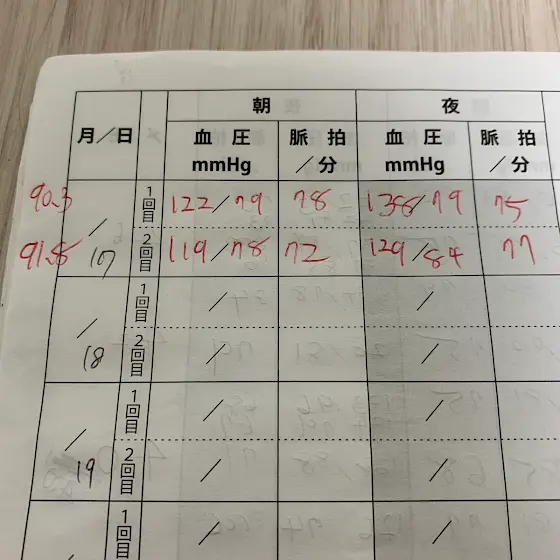 朝 夜
月/日 血圧 mmHg 脈拍 /分 血圧 mmHg 脈拍 /分
90.3 1回目 122/79 78 138/79 75
91.8 /17 2回目 119/78 72 129/84 77
1回目 / /
/18 2回目 / /
1回目 / /
/19 2回目 / /
1回目 / /